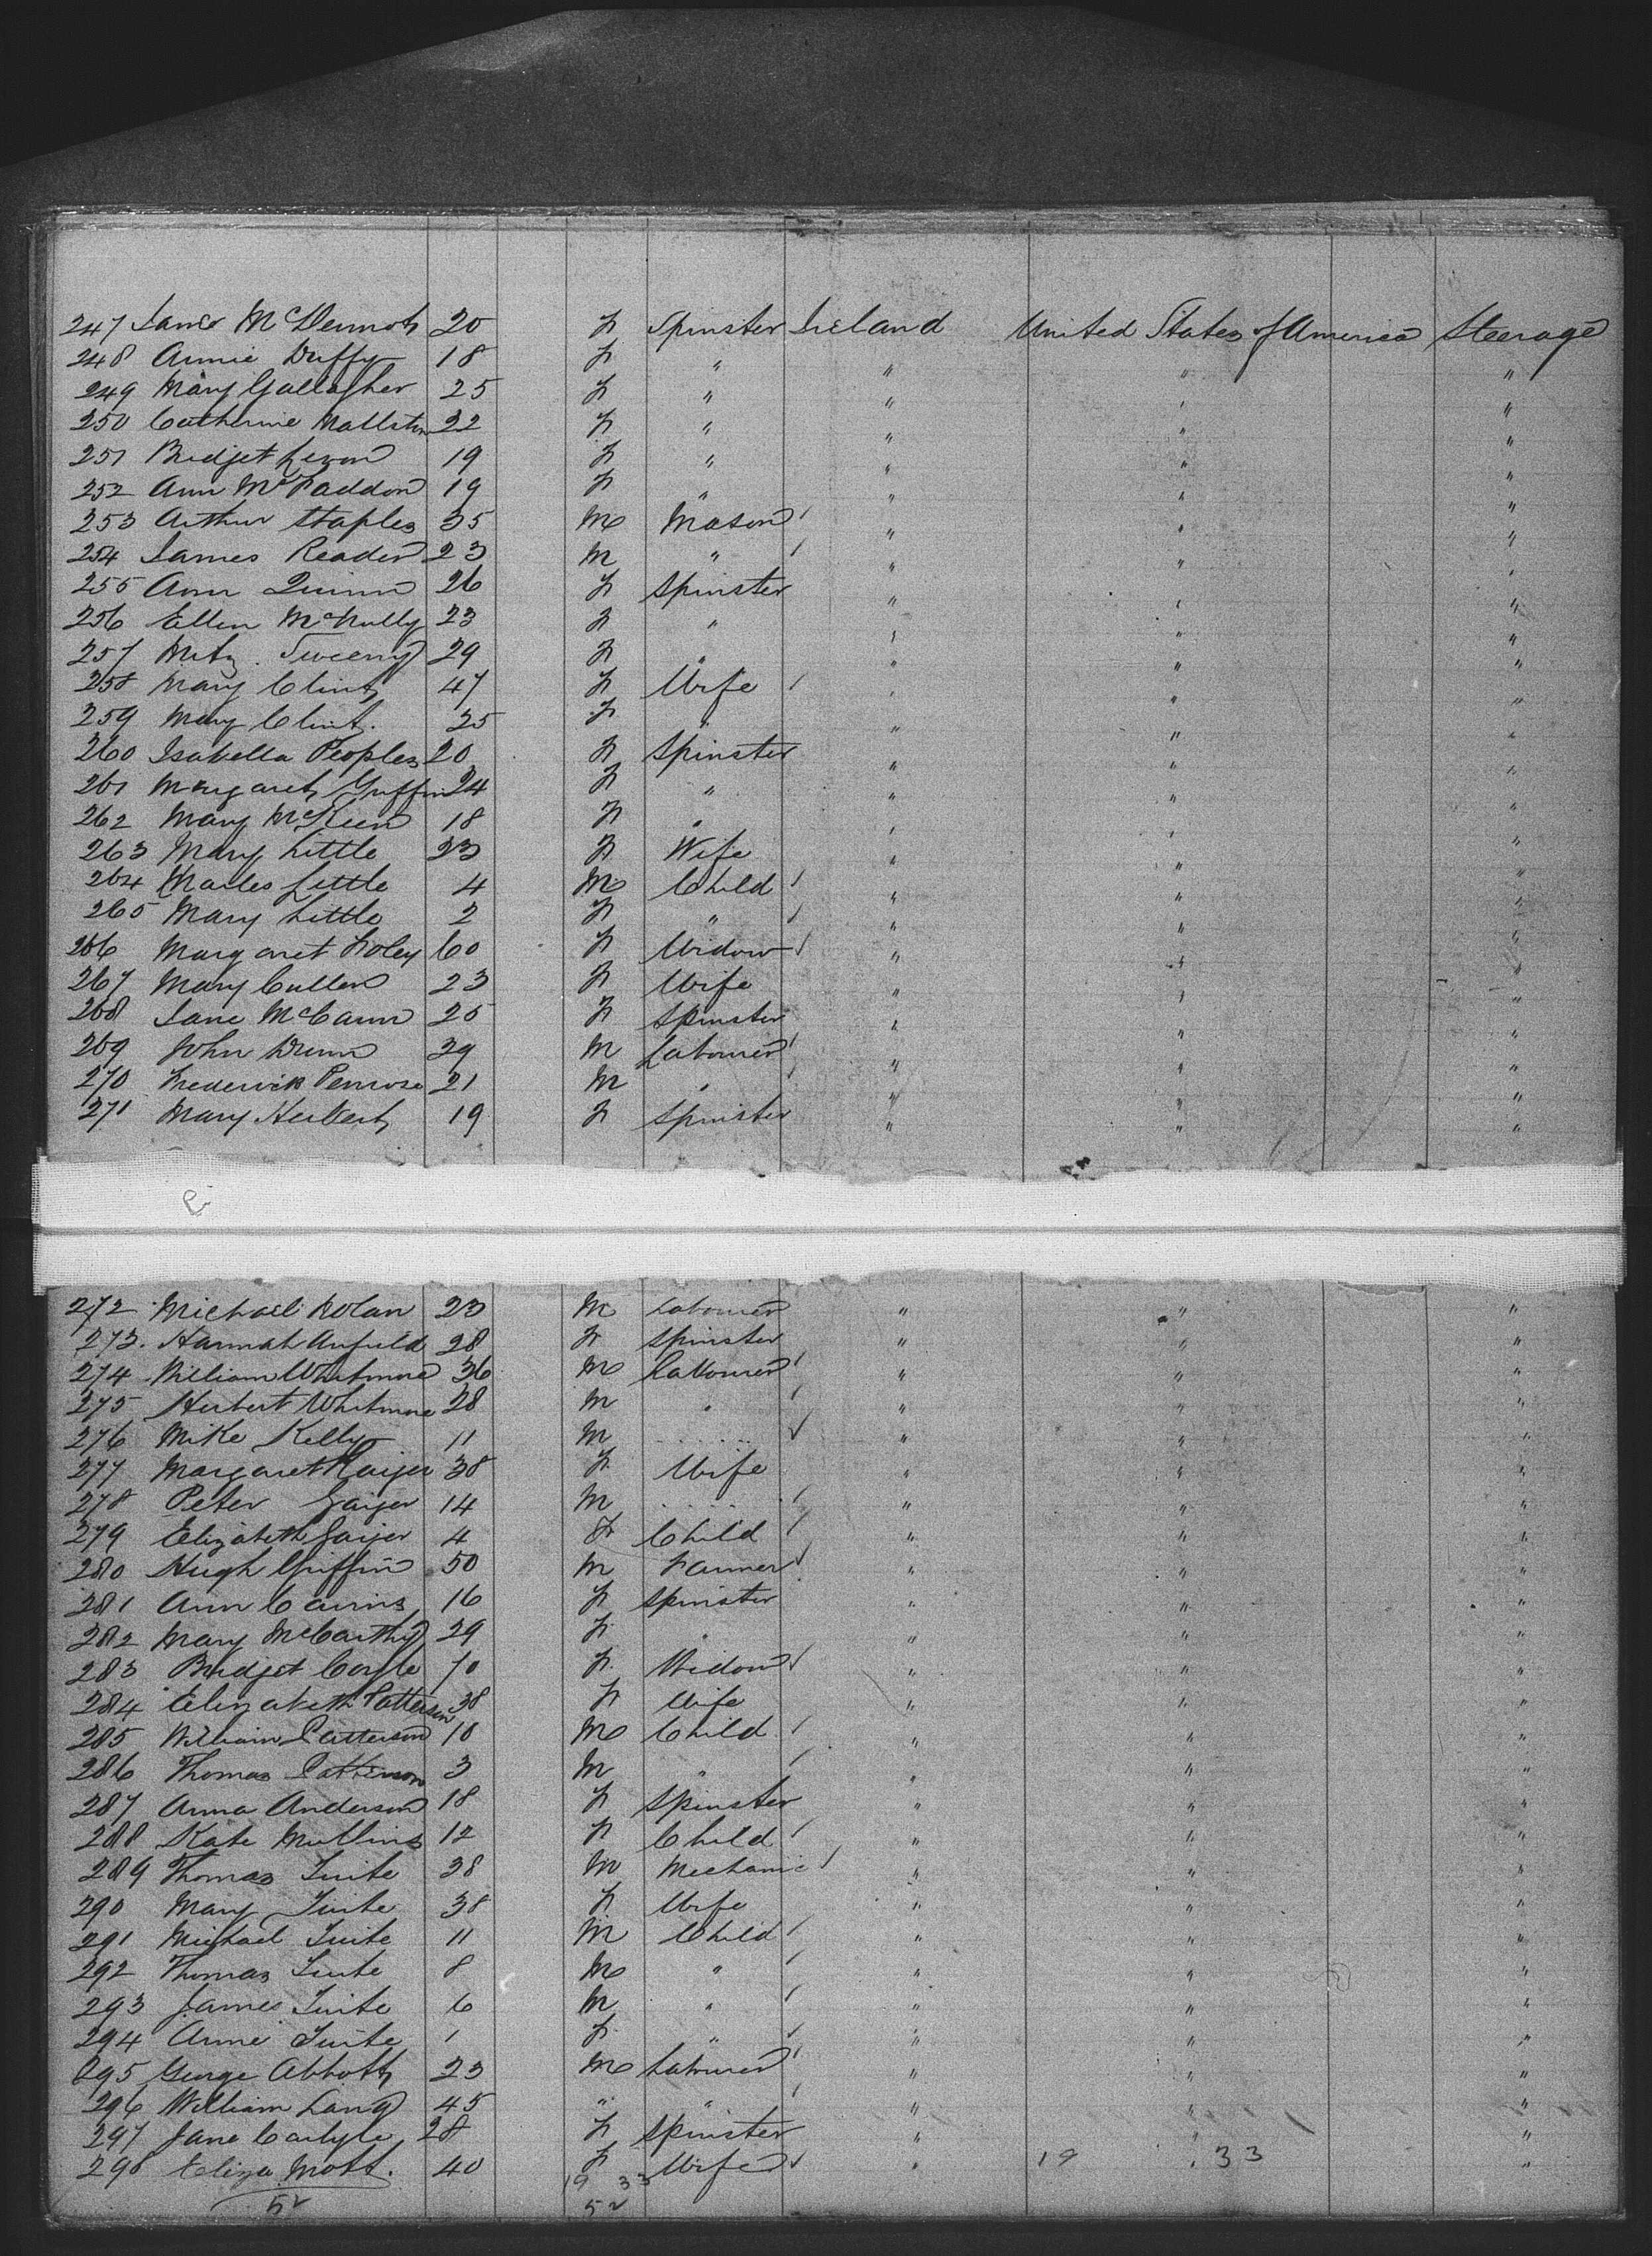 247 Jane McDermott 20 F Spinster Ireland United States of America Steerage
248 Annie Duffy 18 F " " " "
249 Mary Gallagher 25 F " " " "
250 Catherine 22 F " " " "
251 Bridget 19 F " " " "
252 Ann McFaddon 19 F " " " "
253 Arthur Staples 35 M Mason " " "
254 James Reader 23 M " " " "
255 Ann Quinn 26 F Spinster " " "
256 Ellen McNully 23 F " " " "
257 Sweeny 29 F " " " "
258 Mary Clint 47 F Wife " " "
259 Mary Clint. 25 F " " " "
260 Isabella Peoples 20 F Spinster " " "
261 Margaret Griffin 24 F " " " "
262 Mary McKeen 18 F " " " "
263 Mary Little 23 F Wife " " "
264 Charles Little 4 M Child " " "
265 Mary Little 2 F " " " "
266 Margaret Foley 60 F Widow " " "
267 Mary Cullen 23 F Wife " " "
268 Jane McCann 25 F Spinster " " "
269 John Dunn 29 M Labourer " " "
270 Frederick Penrose 21 M " " " "
271 Mary Herbert 19 F Spinster " " "
272 Michael Dolan 23 M Labourer " " "
273. Hannah Anfield 28 F Spinster " " "
274 William Whitmore 36 M Labourer " " "
275 Herbert Whitmore 28 M " " " "
276 Mike Kelly 11 M ...... " " "
277 Margaret Gaiger 38 F Wife " " "
278 Peter Gaiger 14 M ...... " " "
279 Elizabeth Gaiger 4 F Child " " "
280 Hugh Griffin 50 M Farmer " " "
281 Ann Cairns 16 F Spinster " " "
282 Mary McCarthy 29 F " " " "
283 Bridget Coyle 70 F Widow " " "
284 Elizabeth Patterson 38 F Wife " " "
285 William Patterson 10 M Child " " "
286 Thomas Patterson 3 M " " " "
287 Anna Anderson 18 F Spinster " " "
288 Kate Mullins 12 F Child " " "
289 Thomas Tuite 38 M Mechanic " " "
290 Mary Tuite 38 F Wife " " "
291 Michael Tuite 11 M Child " " "
292 Thomas Tuite 8 M " " " "
293 James Tuite 6 M " " " "
294 Anne Tuite 1 F " " " "
295 George Abbott 23 M Labourer " " "
296 William Lang 45 " " " " "
297 Jane Carlyle 28 F Spinster " " "
298 Eliza Mott. 40 F Wife " 19 " 33 "
19 33
52 52